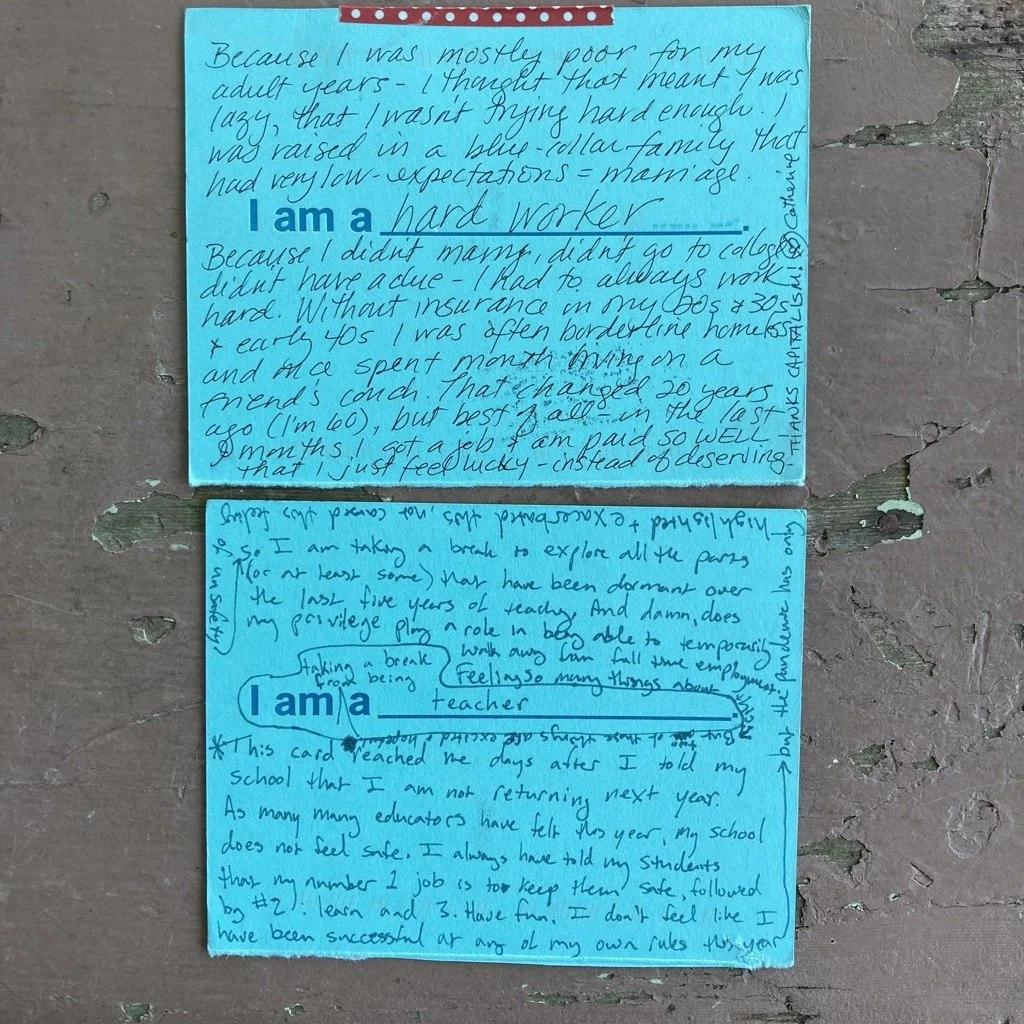 Because I was mostly poor for my
adult years - I thought that meant I was
lazy, that I wasn't trying hard enough. I
was raised in a blue-collar family that
had very low-expectations = marriage.
I am a hard worker.
Because I didn't marry, didn't go to college
didn't have a clue - I had to always work
hard. Without insurance in my 20s & 30s
& early 40s I was often borderline homeless
and once spent month living on a
friend's couch. That changed 20 years
ago (I'm 60), but best of all - in the last
months I got a job & am paid SO WELL
that I just feel lucky - instead of deserving.
THANKS CAPITALISM! Catherine
So I am taking a break to explore all the parts
(or at least some) that have been dormant over
the last five years of teaching. And damn, does
my privilege play a role in being able to temporarily
walk away from full time employment.
Feeling so many things about
taking a break
from being
I am a teacher.
But two of those things are excited & hopeful
*This card reached me days after I told my
school that I am not returning next year.
As many many educators have felt this year, my school
does not feel safe. I always have told my students
that my number 1 job is to keep them safe, followed
by #2. learn and 3. Have fun. I don't feel like I
have been successful at any of my own rules this year
but the pandemic has only
highlighted + exacerbated this, not caused this feeling
of unsafety.